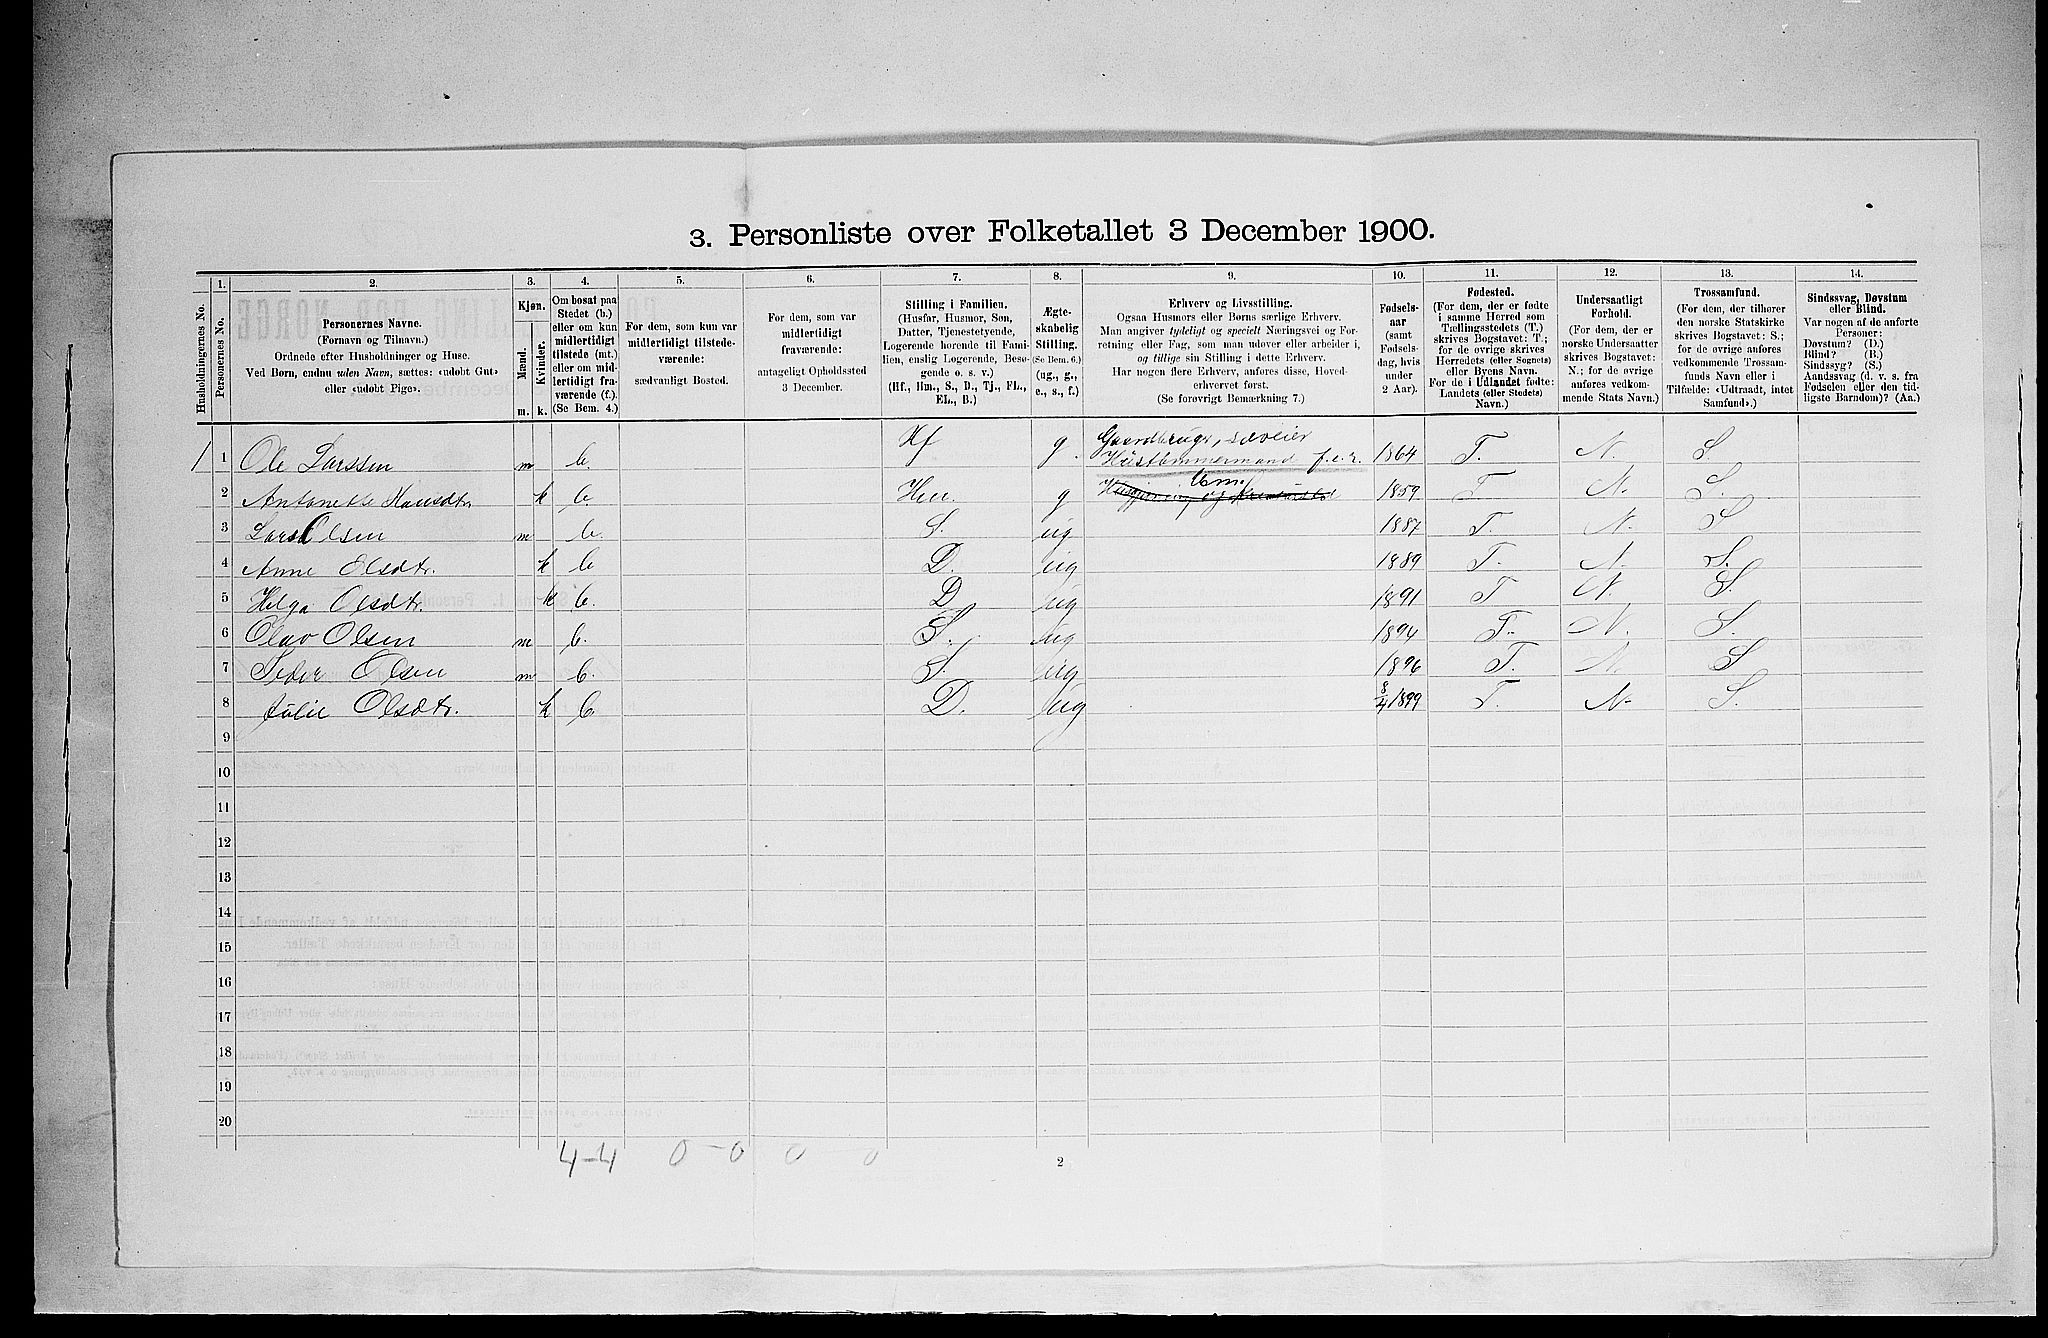 3. Personliste over Folketallet 3 December 1900.
Husholdningernes No.
1.
Personernes No.
2.
Personernes Navne.
(Fornavn og Tilnavn.)
Ordnede efter Husholdninger og Huse.
Ved Børn, endnu uden Navn, sættes: «udobt Gut»
eller «udobt Pige».
3.
Kjøn.
Mænd.
Kvinder.
m.
k.
4.
Om bosat paa
Stedet (b.)
eller om kun
midlertidigt
tilstede (mt.)
eller om mid-
lertidigt fra-
værende (f.).
(Se Bem. 4.)
5.
For dem, som kun var
midlertidigt tilstede-
værende:
sædvanligt Bosted.
6.
For dem, som var
midlertidigt
fraværende:
antageligt Opholdssted
3 December.
7.
Stilling i Familien.
(Husfar, Husmor, Søn,
Datter, Tjenestetyende,
Logerende hørende til Fami-
lien, enslig Logerende, Besø-
gende o. s. v.)
(Hf., Hm., S., D., Tj., FL.,
EL., B.)
8.
Ægte-
skabelig
Stilling.
(Se Bem. 6.)
(ug., g.,
e., s., f.)
9.
Erhverv og Livsstilling.
Ogsaa Husmors eller Børns særlige Erhverv.
Man angiver tydeligt og specielt Næringsvei og For-
retning eller Fag, som man udøver eller arbeider i,
og tillige sin Stilling i dette Erhverv.
Har nogen flere Erhverv, anføres disse, Hoved-
erhvervet først.
(Se forøvrigt Bemærkning 7.)
10.
Fødsels-
aar
(samt
Fødsels-
dag, hvis
under
2 Aar).
11.
Fødested.
(For dem, der er fødte
i samme Herred som
Tællingsstedets (T.)
skrives Bogstavet: T.;
for de øvrige skrives
Herredets (eller Sognets)
eller Byens Navn.
For de i Udlandet fødte:
Landets (eller Stedets)
Navn.)
12.
Undersaatligt
Forhold.
(For dem, der er
norske Undersaatter
skrives Bogstavet:
N.; for de øvrige
anføres vedkom-
mende Stats Navn.)
13.
Trossamfund.
(For dem, der tilhører
den norske Statskirke
skrives Bogstavet: S.;
for de øvrige anføres
vedkommende Trossam-
funds Navn eller i
Tilfælde: «Udtraadt, intet
Samfund».)
14.
Sindssvag, Døvstum
eller Blind.
Var nogen af de anførte
Personer:
Døvstum? (D.)
Blind? (B.)
Sindssyg? (S.)
Aandssvag (d. v. s. fra
Fødselen eller den tid-
ligste Barndom)? (Aa.)
1 1 Ole Larssen m b. Hf g. Gaardbruger, selveier Hustømmermand f.e.r. 1864 T. N. S.
2 Antonette Hansdtr k b. Hm. g 1859 T. N. S.
3 Lars Olsen m b. S. ug 1887 T. N. S
4 Anne Olsdtr. k b D. ug 1889 T. N. S.
5 Helga Olsdtr. k b. D ug 1891 T N. S.
6 Olav Olsen m b. S. ug 1894 T. N. S.
7 Peder Olsen m b. S. ug 1896 T. N. S
8 Julie Olsdtr. k b D. ug 8/4 1899 T. N. S.
9
10
11
12
13
14
15
16
17
18
19
20
4-4 0-0 0 0
2